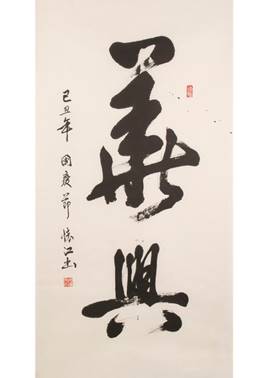 華興
己丑年 國慶節 懷江書